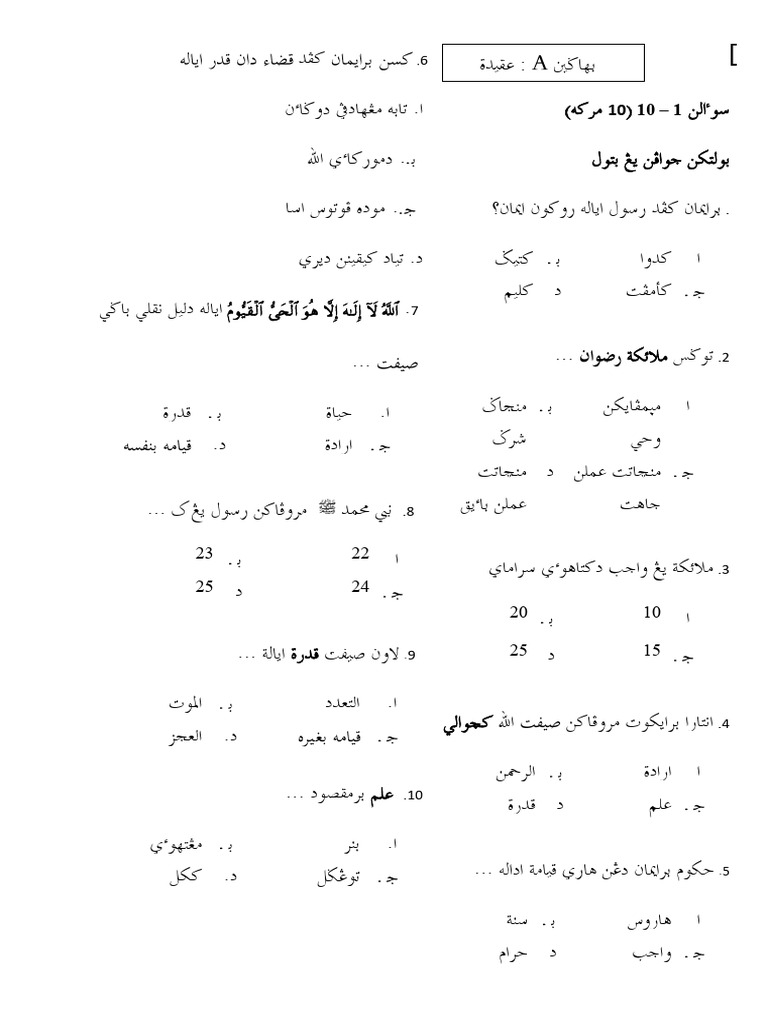 [
بهاڬين A : عقيدة
سوءالن 1 – 10 (10 مركه)
بولتكن جواڤن يڠ بتول
. برايمان كڤد رسول اياله روكون ايمان؟
ا كدوا ب. كتيݢ
ج. كأمڤت د كليم
2. توݢس ملائكة رضوان ...
ا ميمڤايكن ب. منجاݢ
وحي شرݢ
ج. منچاتت عملن د منچاتت
جاهت عملن باءيق
3. ملائكة يڠ واجب دكتاهوءي سراماي
ا 10 ب. 20
ج. 15 د 25
4. انتارا برايكوت مروڤاكن صيفت الله كچوالي
ا ارادة ب. الرحمن
ج. علم د قدرة
5. حكوم برايمان دڠن هاري قيامة اداله ...
ا هاروس ب. سنة
ج. واجب د حرام
6. كسن برايمان كڤد قضاء دان قدر اياله
ا. تابه مڠهادڤي دوݢاءن
ب. دموركاءي الله
ج. موده ڤوتوس اسا
د. تياد كيقينن ديري
7. ٱللَّهُ لَآ إِلَٰهَ إِلَّا هُوَ ٱلْحَىُّ ٱلْقَيُّومُ اياله دليل نقلي باݢي
صيفت ...
ا. حياة ب. قدرة
ج. ارادة د. قيامه بنفسه
8. نبي محمد ﷺ مروڤاكن رسول يڠ ک ...
ا 22 ب. 23
ج. 24 د 25
9. لاون صيفت قدرة ايالة ...
ا. التعدد ب. الموت
ج. قيامه بغيره د. العجز
10. علم برمقصود ...
ا. بنر ب. مڠتهوءي
ج. توڠݢل د. ككل